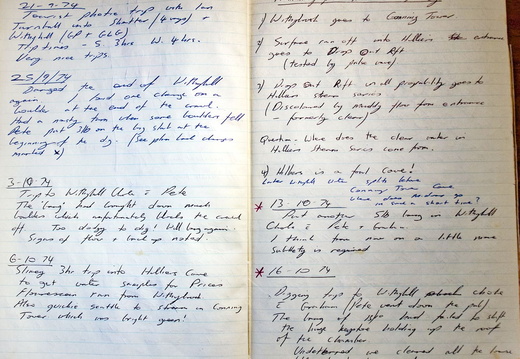 21-9-74
Tourist photo trip with Ian
Turnbull into Shatter (4 hrs) +
Withyhill (GP + G&G)
Trip times - S. 3hrs W. 4hrs.
Very nice trips.
25/9/74
the end of Withyhill
again. Laid one charge on a
boulder at the end of the crawl.
Had a nasty time when some boulders fell
Pete put 3lb on the big shit at the
beginning of the dig.
3-10-74
Trip to Withyhill with Pete
The 'bang' had brought down much
boulders which unfortunately blocks the crawl
off. Too dodgy to dig! Will bang again.
Signs of flow + back up noted.
6-10-74
3hr trip into Hilliers Cave
to get water samples for Prices
Fluorescein run from Withybrook
Also quick trip to stream in Conning
Tower which was bright green!
1) Withybrook goes to Conning Tower
2) Surface run off into Hilliers entrance
goes to Drop Out Rift
(tested by )
3) Drop Out Rift in all probability goes to
Hilliers stream series
(Discoloured by muddy flow from entrance
- formerly clear)
Question. Where does the clear water in
Hilliers Stream Series come from.
4) Hilliers is a foul Cave!
Conning Tower Cave
* 13-10-74
Put another 5lb bang in Withyhill
Choke with Pete +
I think from now on a little more
Subtlety is required
* 16-10-74
Digging trip to Withyhill choke
with (Pete went down the pub)
The bang of had failed to shift
the large keystone holding up the roof
of the chamber
Undeterred we cleared all the loose